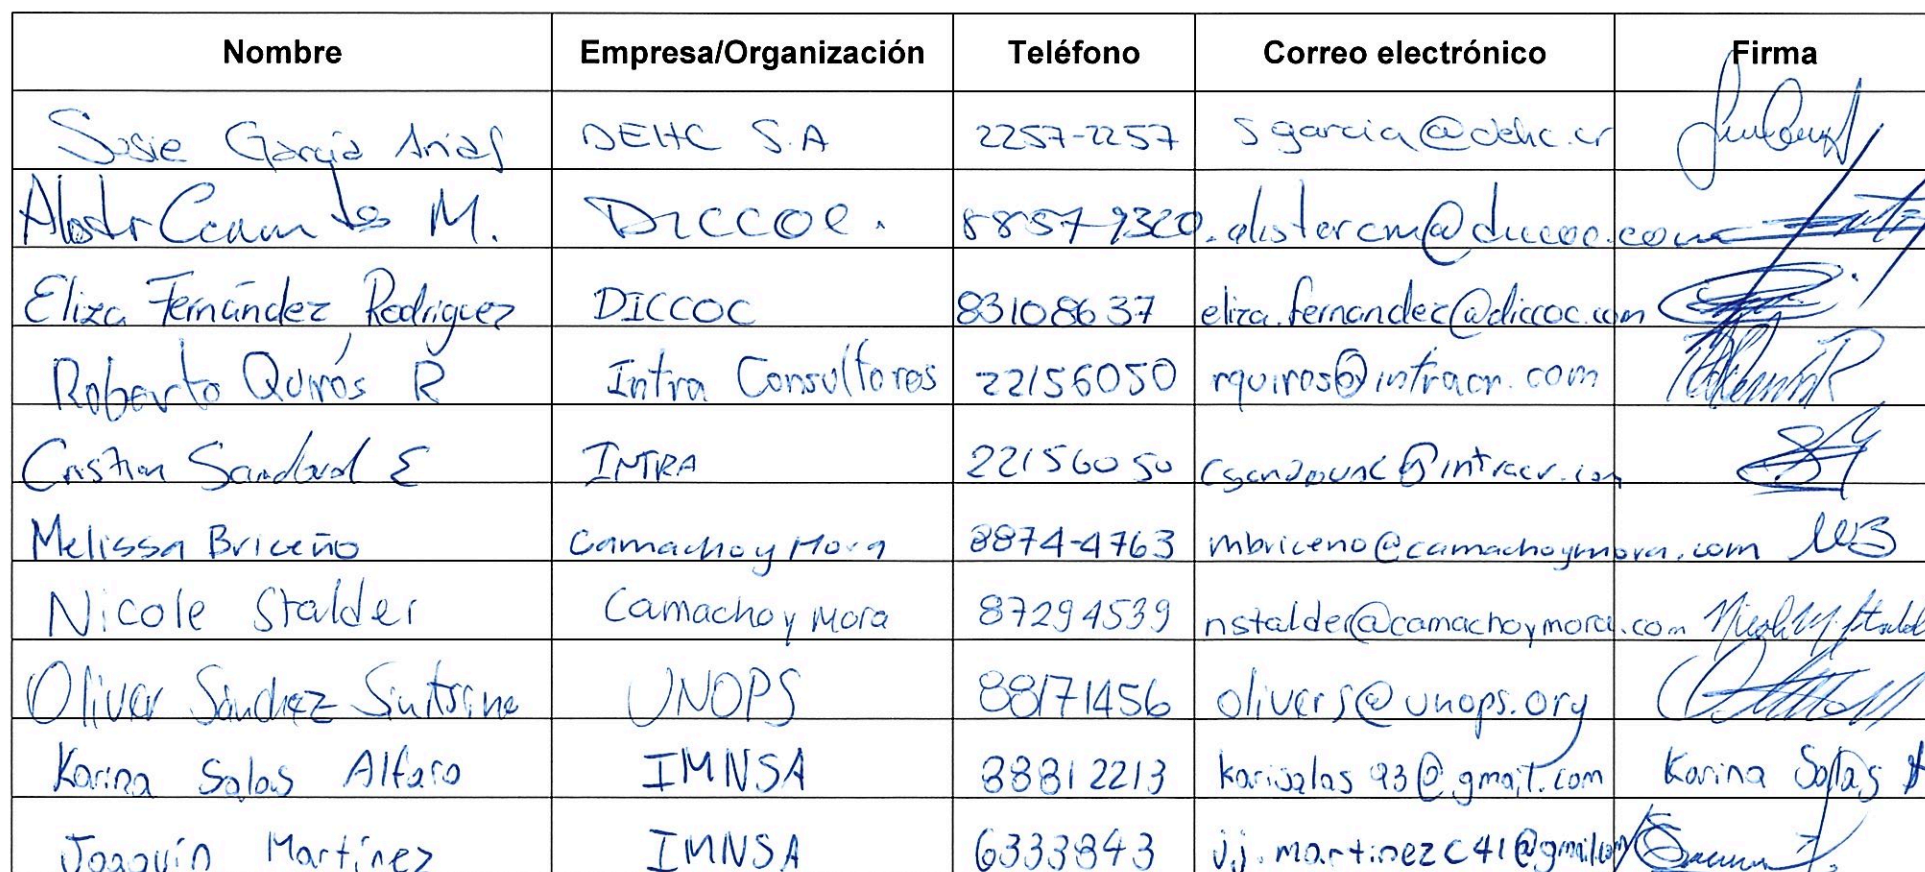 Nombre Empresa/Organización Teléfono Correo electrónico Firma
Susie García Arias DEHC S.A 2257-2257 sgarcia@dehc.cr
M. DICCOC. alistercm@diccoc.com
Eliza Fernández Rodríguez DICCOC 83108637 eliza.fernandez@diccoc.com
Roberto Quirós R Intra Consultores 22156050 rquiros@intracr.com
Cristian Sandoval E INTRA 22156050
Melissa Briceño Camacho y Mora 8874-4763 mbriceno@camachoymora.com MB
Nicole Stalder Camacho y Mora 87294539 nstalder@camachoymora.com
Oliver Sánchez UNOPS 88171456 olivers@unops.org
Karina Salas Alfaro IMNSA 88812213 karisalas93@gmail.com Karina Salas A
Joaquín Martínez IMNSA 6333843 j.j.martinezc41@gmail.com